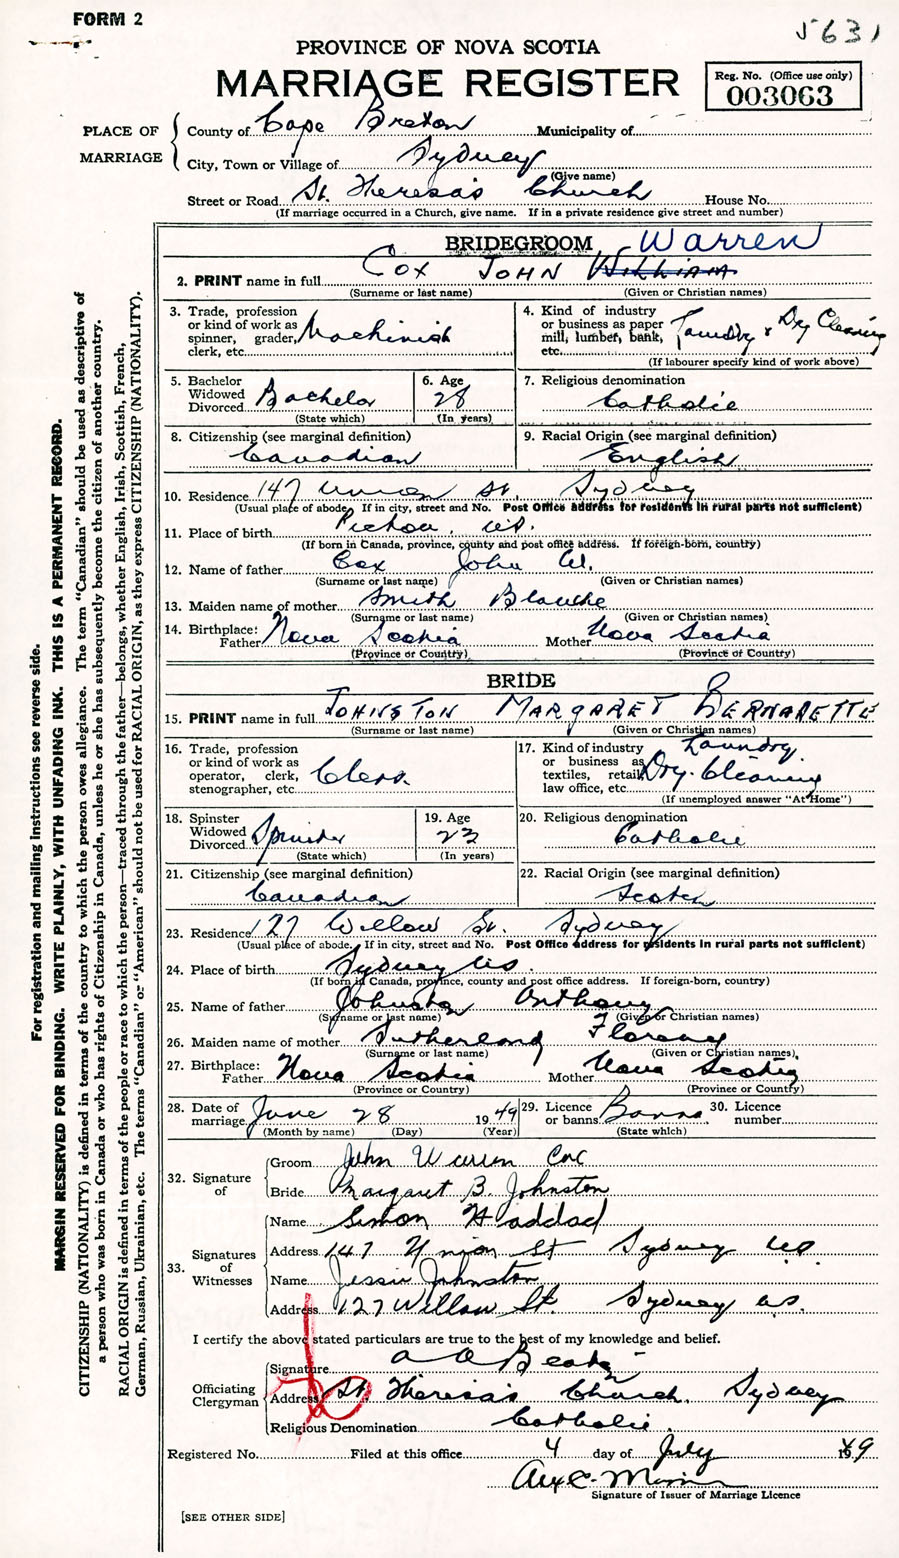 FORM 2
5631
PROVINCE OF NOVA SCOTIA
MARRIAGE REGISTER
Reg. No. (Office use only)
003063
PLACE OF MARRIAGE
County of Cape Breton Municipality of
City, Town or Village of Sydney
(Give name)
Street or Road St. Theresa's Church House No.
(If marriage occurred in a Church, give name. If in a private residence give street and number)
BRIDEGROOM Warren
2. PRINT name in full COX JOHN WILLIAM
(Surname or last name) (Given or Christian names)
3. Trade, profession or kind of work as spinner, grader, clerk, etc. Machinist
4. Kind of industry or business as paper mill, lumber, bank, etc. Laundry & Dry Cleaning
(If labourer specify kind of work above)
5. Bachelor Widowed Divorced Bachelor
(State which)
6. Age 28
(In years)
7. Religious denomination
Catholic
8. Citizenship (see marginal definition)
Canadian
9. Racial Origin (see marginal definition)
English
10. Residence 147 Union St. Sydney
(Usual place of abode. If in city, street and No. Post Office address for residents in rural parts not sufficient)
11. Place of birth Pictou, N.S.
(If born in Canada, province, county and post office address. If foreign-born, country)
12. Name of father Cox John W.
(Surname or last name) (Given or Christian names)
13. Maiden name of mother Smith Blanche
(Surname or last name) (Given or Christian names)
14. Birthplace: Father Nova Scotia Mother Nova Scotia
(Province or Country) (Province or Country)
BRIDE
15. PRINT name in full JOHNSTON MARGARET BERNADETTE
(Surname or last name) (Given or Christian names)
16. Trade, profession or kind of work as operator, clerk, stenographer, etc. Clerk
17. Kind of industry or business as textiles, retail, law office, etc. Laundry, Dry-Cleaning
(If unemployed answer "At Home")
18. Spinster Widowed Divorced Spinster
(State which)
19. Age 23
(In years)
20. Religious denomination
Catholic
21. Citizenship (see marginal definition)
Canadian
22. Racial Origin (see marginal definition)
Scotch
23. Residence 127 Willow St. Sydney
(Usual place of abode. If in city, street and No. Post Office address for residents in rural parts not sufficient)
24. Place of birth Sydney N.S.
(If born in Canada, province, county and post office address. If foreign-born, country)
25. Name of father Johnston Anthony
(Surname or last name) (Given or Christian names)
26. Maiden name of mother Sutherland Florence
(Surname or last name) (Given or Christian names)
27. Birthplace: Father Nova Scotia Mother Nova Scotia
(Province or Country) (Province or Country)
28. Date of marriage June 28 1949
(Month by name) (Day) (Year)
29. Licence or banns Banns
(State which)
30. Licence number
32. Signature of
Groom John Warren Cox
Bride Margaret B. Johnston
33. Signatures of Witnesses
Name Simon Haddad
Address 147 Union St Sydney N.S.
Name Jessie Johnston
Address 127 Willow St Sydney N.S.
I certify the above stated particulars are true to the best of my knowledge and belief.
Officiating Clergyman
Signature
Address St. Theresa's Church, Sydney
Religious Denomination Catholic
Registered No. Filed at this office 4 day of July 1949
Signature of Issuer of Marriage Licence
[SEE OTHER SIDE]
For registration and mailing instructions see reverse side.
MARGIN RESERVED FOR BINDING. WRITE PLAINLY, WITH UNFADING INK. THIS IS A PERMANENT RECORD.
CITIZENSHIP (NATIONALITY) is defined in terms of the country to which the person owes allegiance. The term "Canadian" should be used as descriptive of
a person who was born in Canada or who has rights of Citizenship in Canada, unless he or she has subsequently become the citizen of another country.
RACIAL ORIGIN is defined in terms of the people or race to which the person—traced through the father—belongs, whether English, Irish, Scottish, French,
German, Russian, Ukrainian, etc. The terms "Canadian" or "American" should not be used for RACIAL ORIGIN, as they express CITIZENSHIP (NATIONALITY).